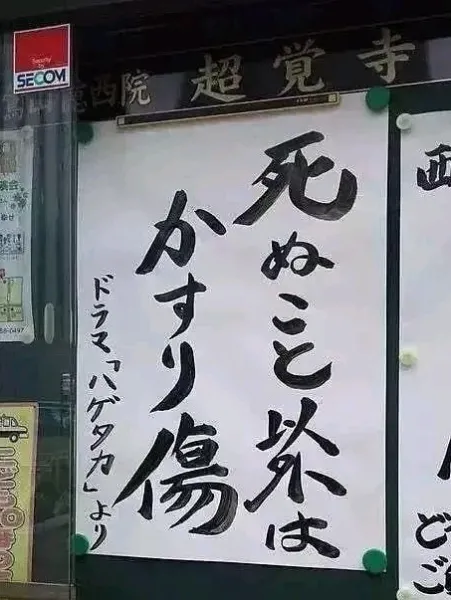 Security by
SECOM
西院 超覚寺
死ぬこと以外は
かすり傷
ドラマ「ハゲタカ」より